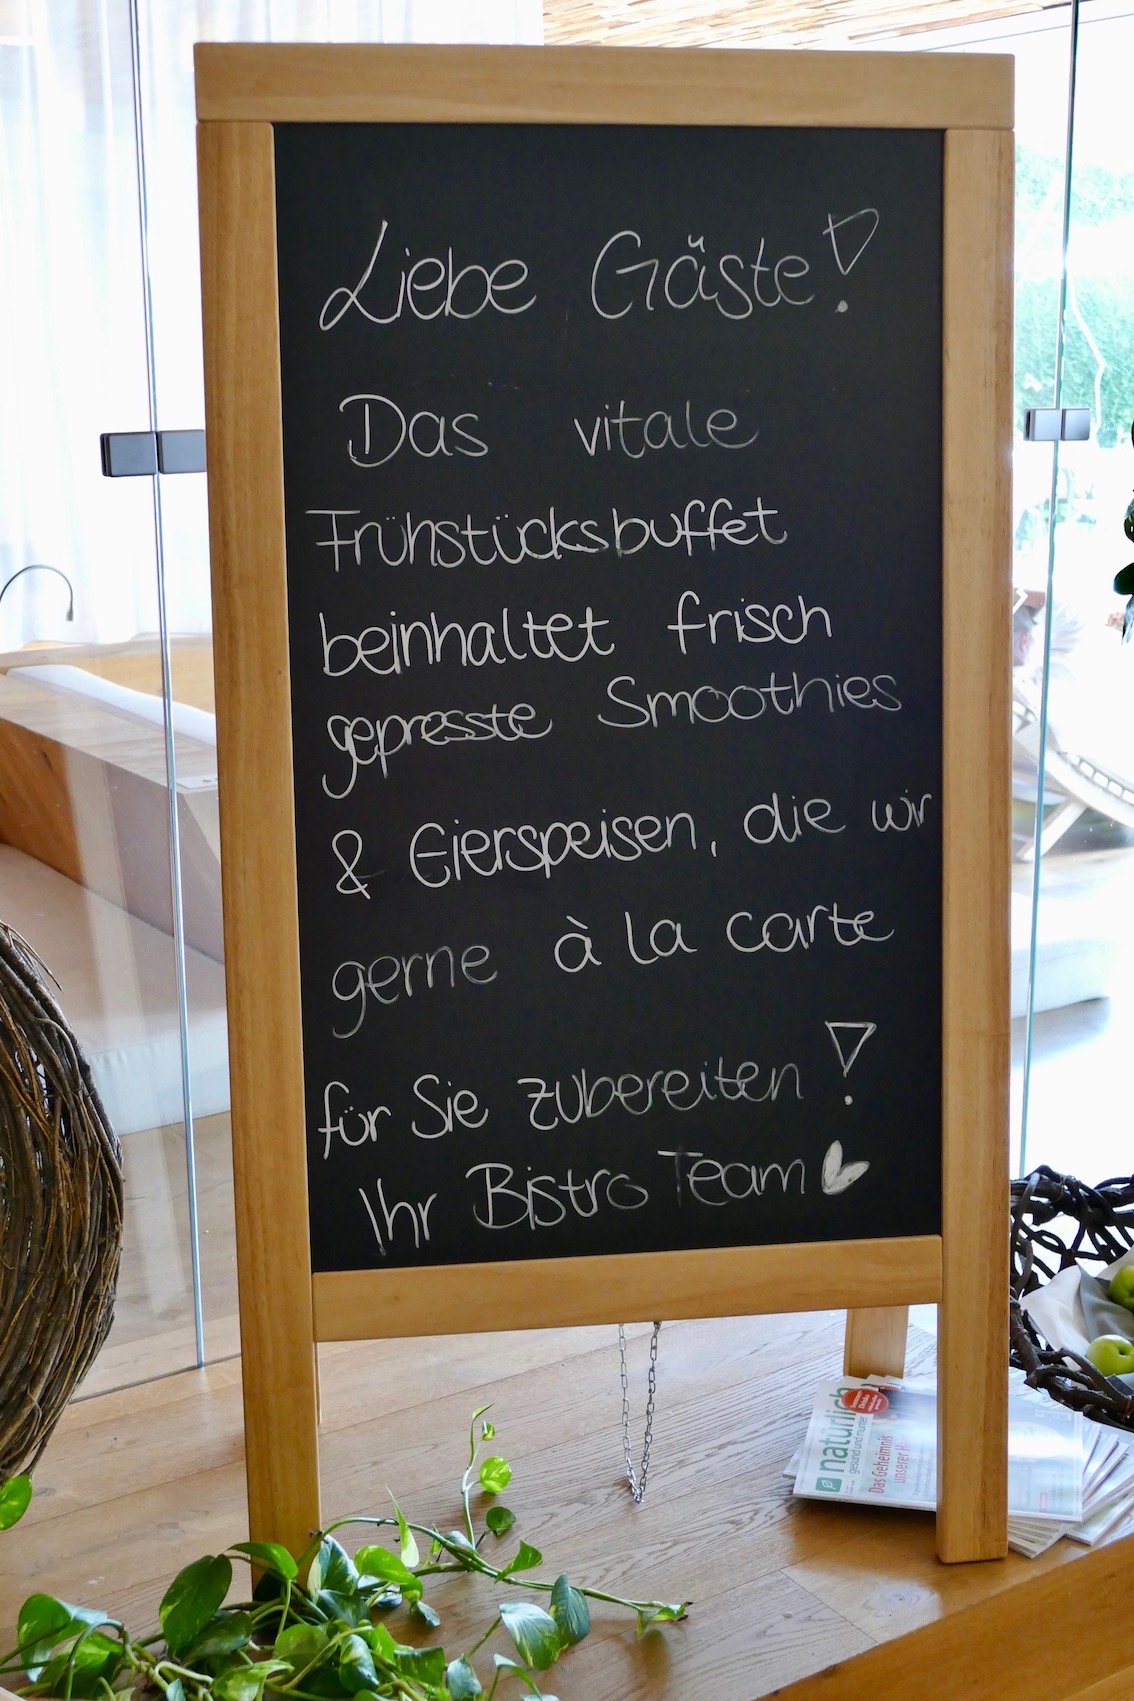 Liebe Gäste!
Das vitale
Frühstücksbuffet
beinhaltet frisch
gepresste Smoothies
& Eierspeisen, die wir
gerne à la carte
für Sie zubereiten!
Ihr Bistro Team
natürlich
gesund und munter
Das Geheimnis
unserer